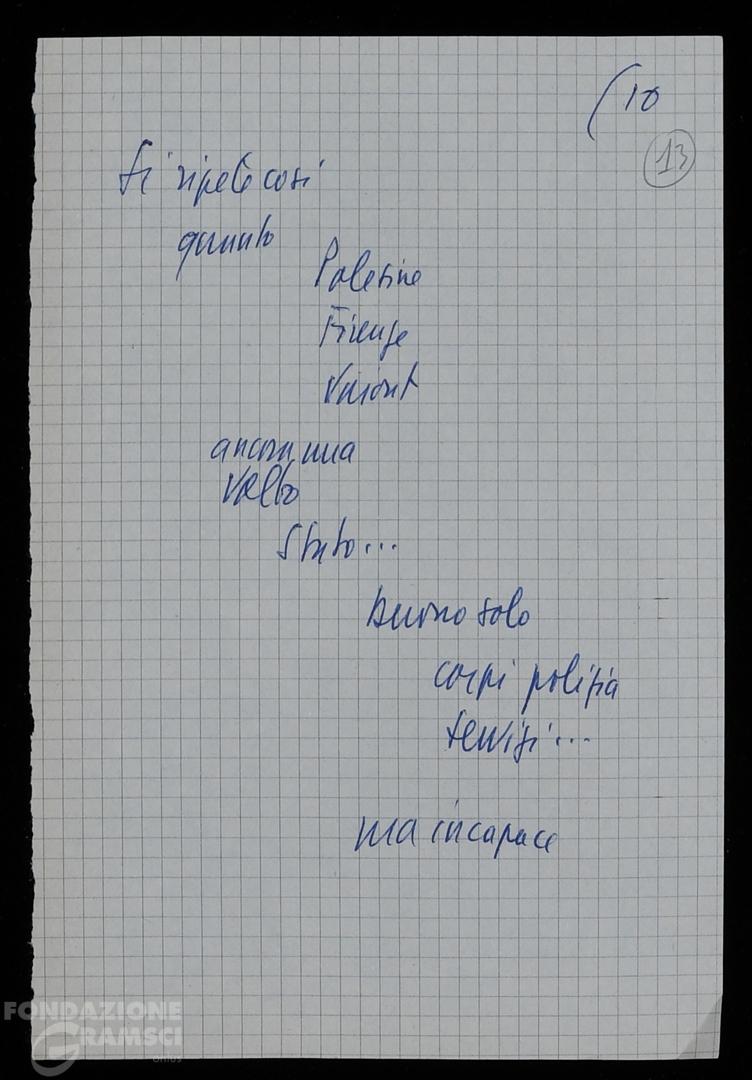 (10
13
Si ripete così
quanto
Polesine
Firenze
Vaiont
ancora una
volta
Stato...
buono solo
corpi polizia
servizi...
ma incapace
FONDAZIONE
GRAMSCI
onlus